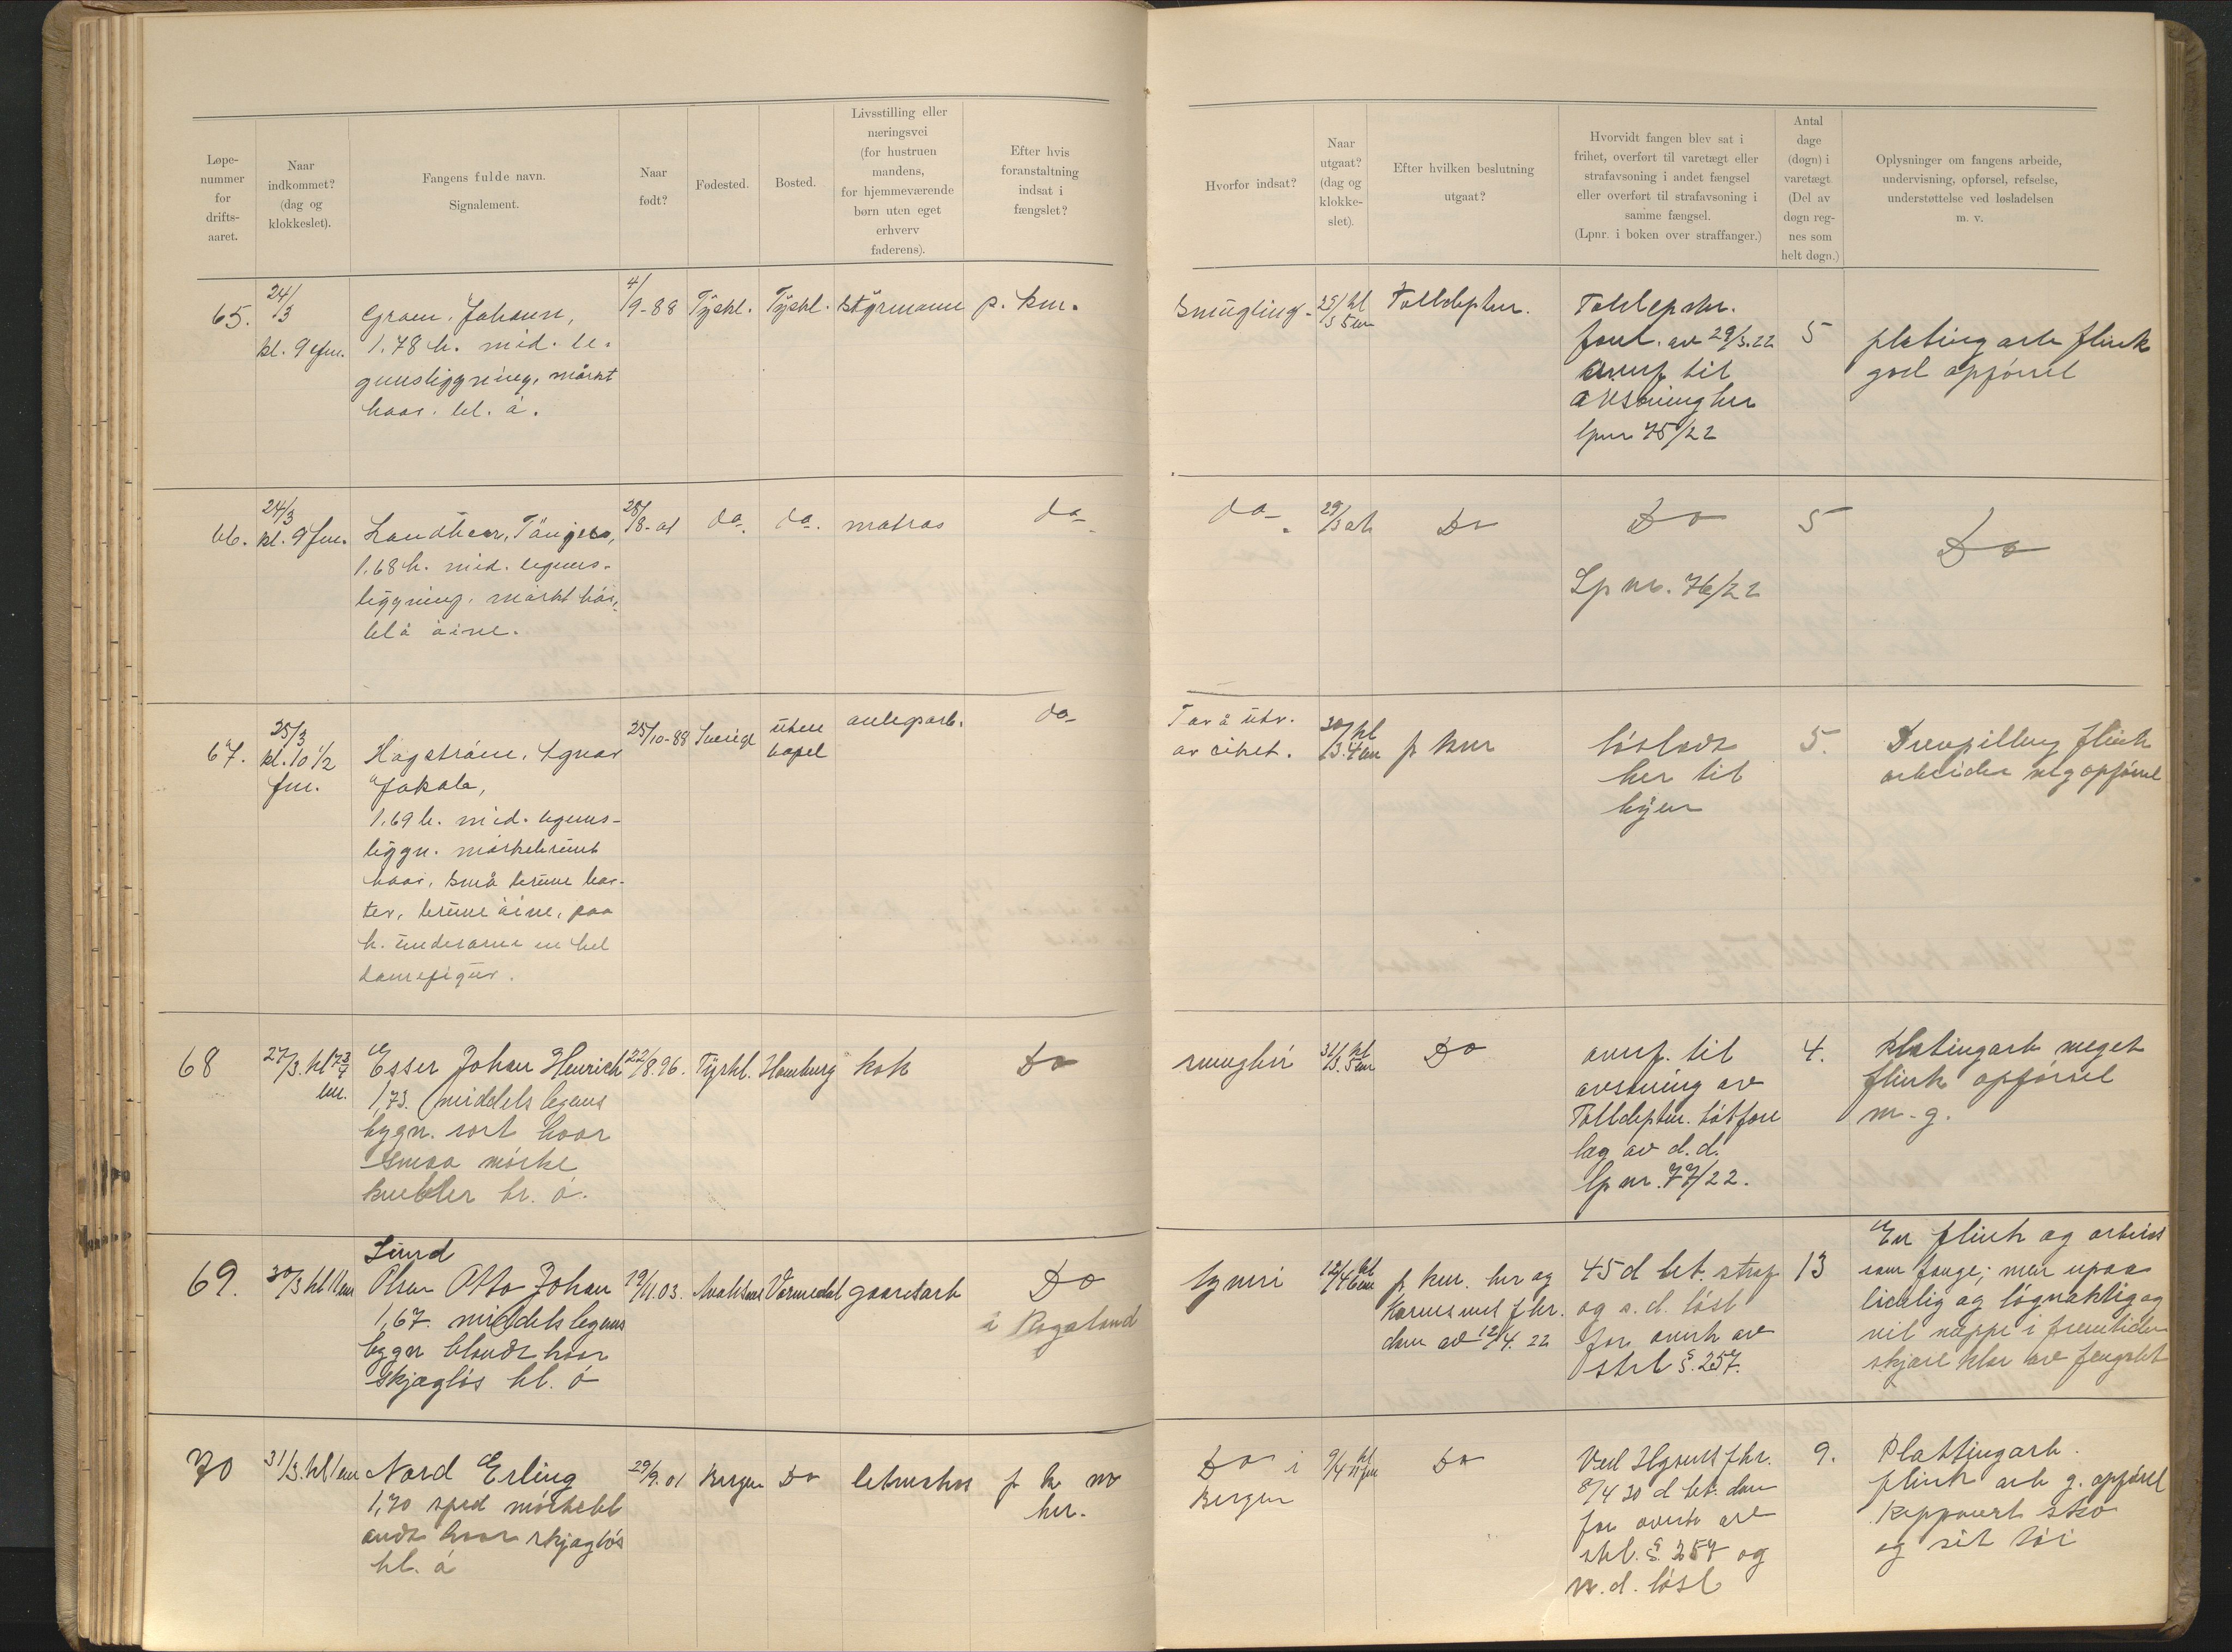 Løpe-
nummer
for
drifts-
aaret.
Naar
indkommet?
(dag og
klokkeslet).
Fangens fulde navn.
Signalement.
Naar
født?
Fødested.
Bosted.
Livsstilling eller
næringsvei
(for hustruen
mandens,
for hjemmeværende
børn uten eget
erhverv
faderens).
Efter hvis
foranstaltning
indsat i
fængslet?
Hvorfor indsat?
Naar
utgaat?
(dag og
klokke-
slet).
Efter hvilken beslutning
utgaat?
Hvorvidt fangen blev sat i
frihet, overført til varetægt eller
strafavsoning i andet fængsel
eller overført til strafavsoning i
samme fængsel.
(Lpnr. i boken over straffanger.)
Antal
dage
(døgn) i
varetægt
(Del av
døgn reg-
nes som
helt døgn.)
Oplysninger om fangens arbeide,
undervisning, opførsel, refselse,
understøttelse ved løsladelsen
m. v.
65.
24/3
kl. 9 efm.
Johann,
1.78 h. mid. le-
gemsbyggning, mørkt
haar. bl. ø.
4/9-88
Tyskl.
Tyskl.
styrmann
p. km.
Smugling.
Tolldeptm.
forel. av 29/3.22
overf til
avsoning her
lpnr 75/22
5
plating arb flink
god opførsel
66.
24/3
kl. 9 fm.
1.68 h. mid. legems-
byggning, mørkt hår,
blå øine.
28/8-01
do.
do.
matros
do
do
29/3
Do
Do
Lp nr. 76/22
5
Do
67.
25/3
kl. 10 1/2
fm.
Hagström,
1.69 h. mid. legems-
byggn. mørkebrunt
haar, små brune bar-
ter, brune øine, paa
h. underarm en hel
damefigur.
25/10-88
Sverige
uten
bopel
anlegsarb.
do
30/3 kl
p km
løsladt
her til
byen
5.
Drevpilling flink
arbeider mg opførsel
68
27/3. kl 7 3/4
em.
Esser Johan Henrich
1,73. middels legems
bygn. sort haar
smaa mørke
br. ø.
22/8.96.
Tyskl.
Hamburg
kok
Do
31/3. kl 5 em
Do
overf. til
avsoning av
Tolldeptm.
lag av d.d.
lp nr. 77/22.
4.
Platingarb meget
flink opførsel
m. g.
69.
30/3 kl 1 em
Lund
Olsen Otto Johan
1,67. middels legems
bygn blondt haar
skjægløs bl. ø
19/11.03.
gaardsarb
Do
i Rogaland
tyveri
12/4 kl
p km. her og
dom av 12/4. 22
45 d bet. straf
og s. d. løsl
for overtr av
strl §. 257.
13
En flink og arbeid
som fange; men upaa
lidelig og løgnaktig og
vil neppe i fremtiden
skjære klar av fengslet
70
31/3. kl 1 em
Nord Erling
1,70 sped mørkebl
ondt haar skjægløs
bl. ø
29/9.01
Bergen
Do
p k m
her.
Do i
Bergen
9/4 kl
Do
8/4 30 d bet. dom
for overtr av
strl. §. 257 og
n. d. løsl
9.
Plattingarb.
flink arb g. opførsel
sko
og sit tøi